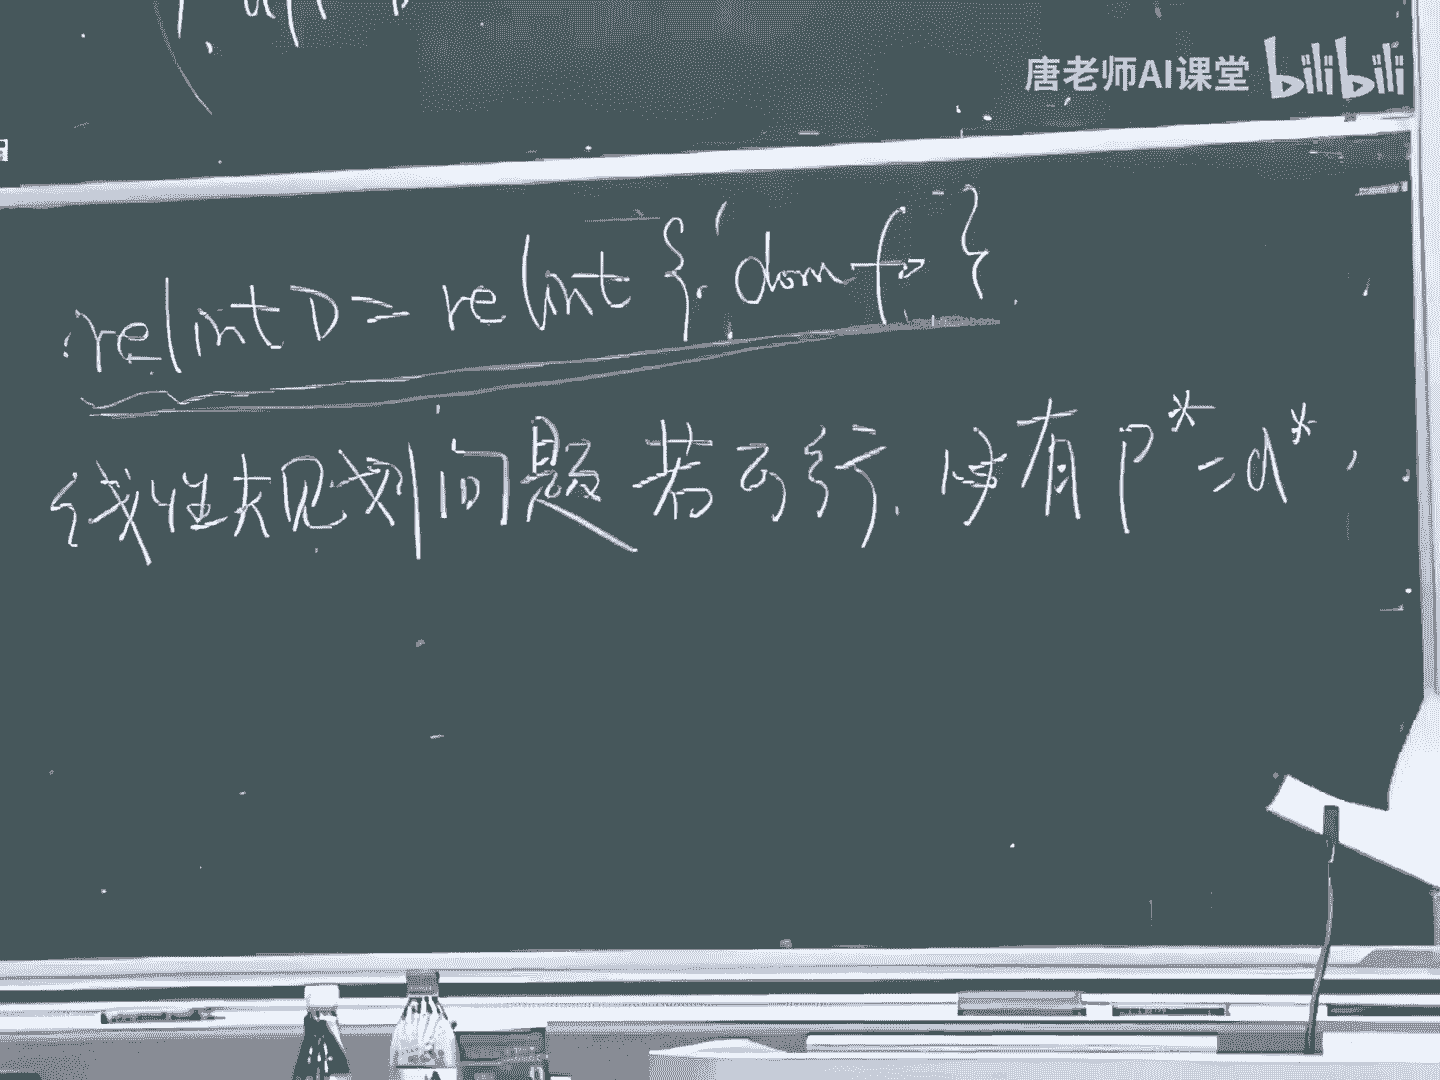 唐老师AI课堂 bilibili
relint D = relint { dom f₀ }
线性规划问题若可行,必有 p* = d*